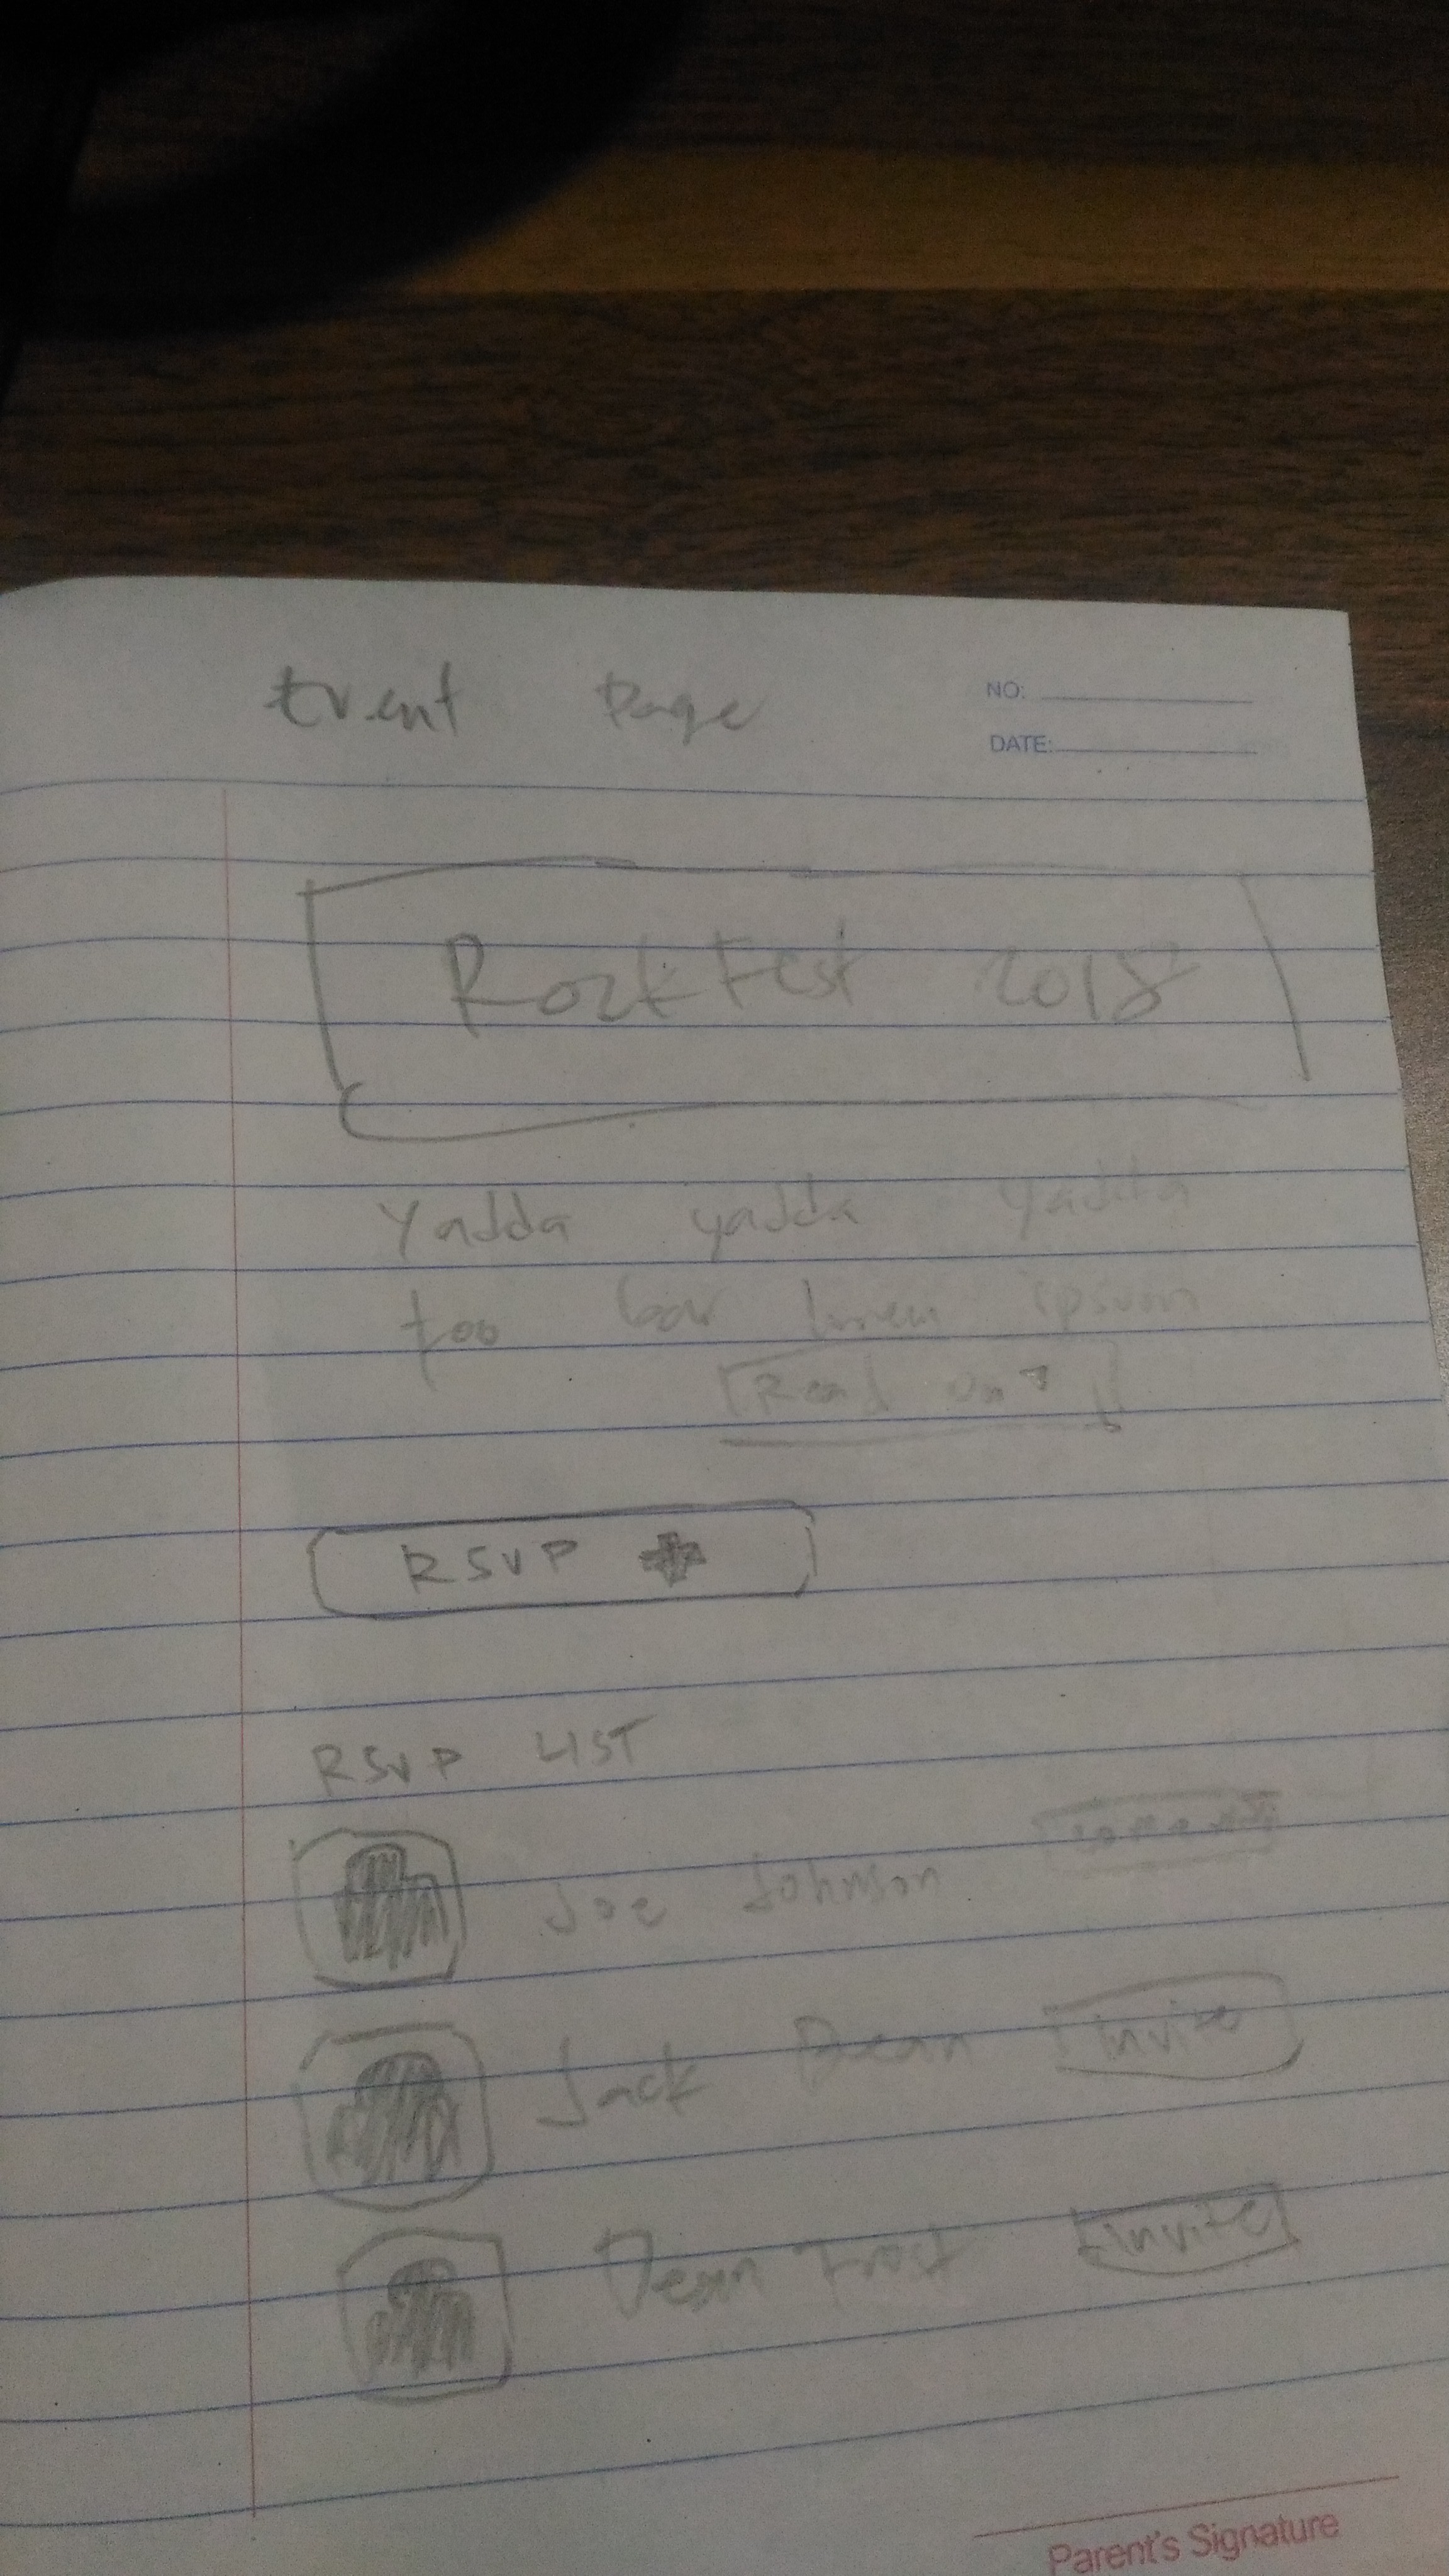 Event Page
NO:
DATE:
RockFest 2018
Yadda yadda yadda
foo bar lorem ipsum
Read on
RSVP +
RSVP LIST
Joe Johnson
Jack Dean invite
Dean Frost invite
Parent's Signature